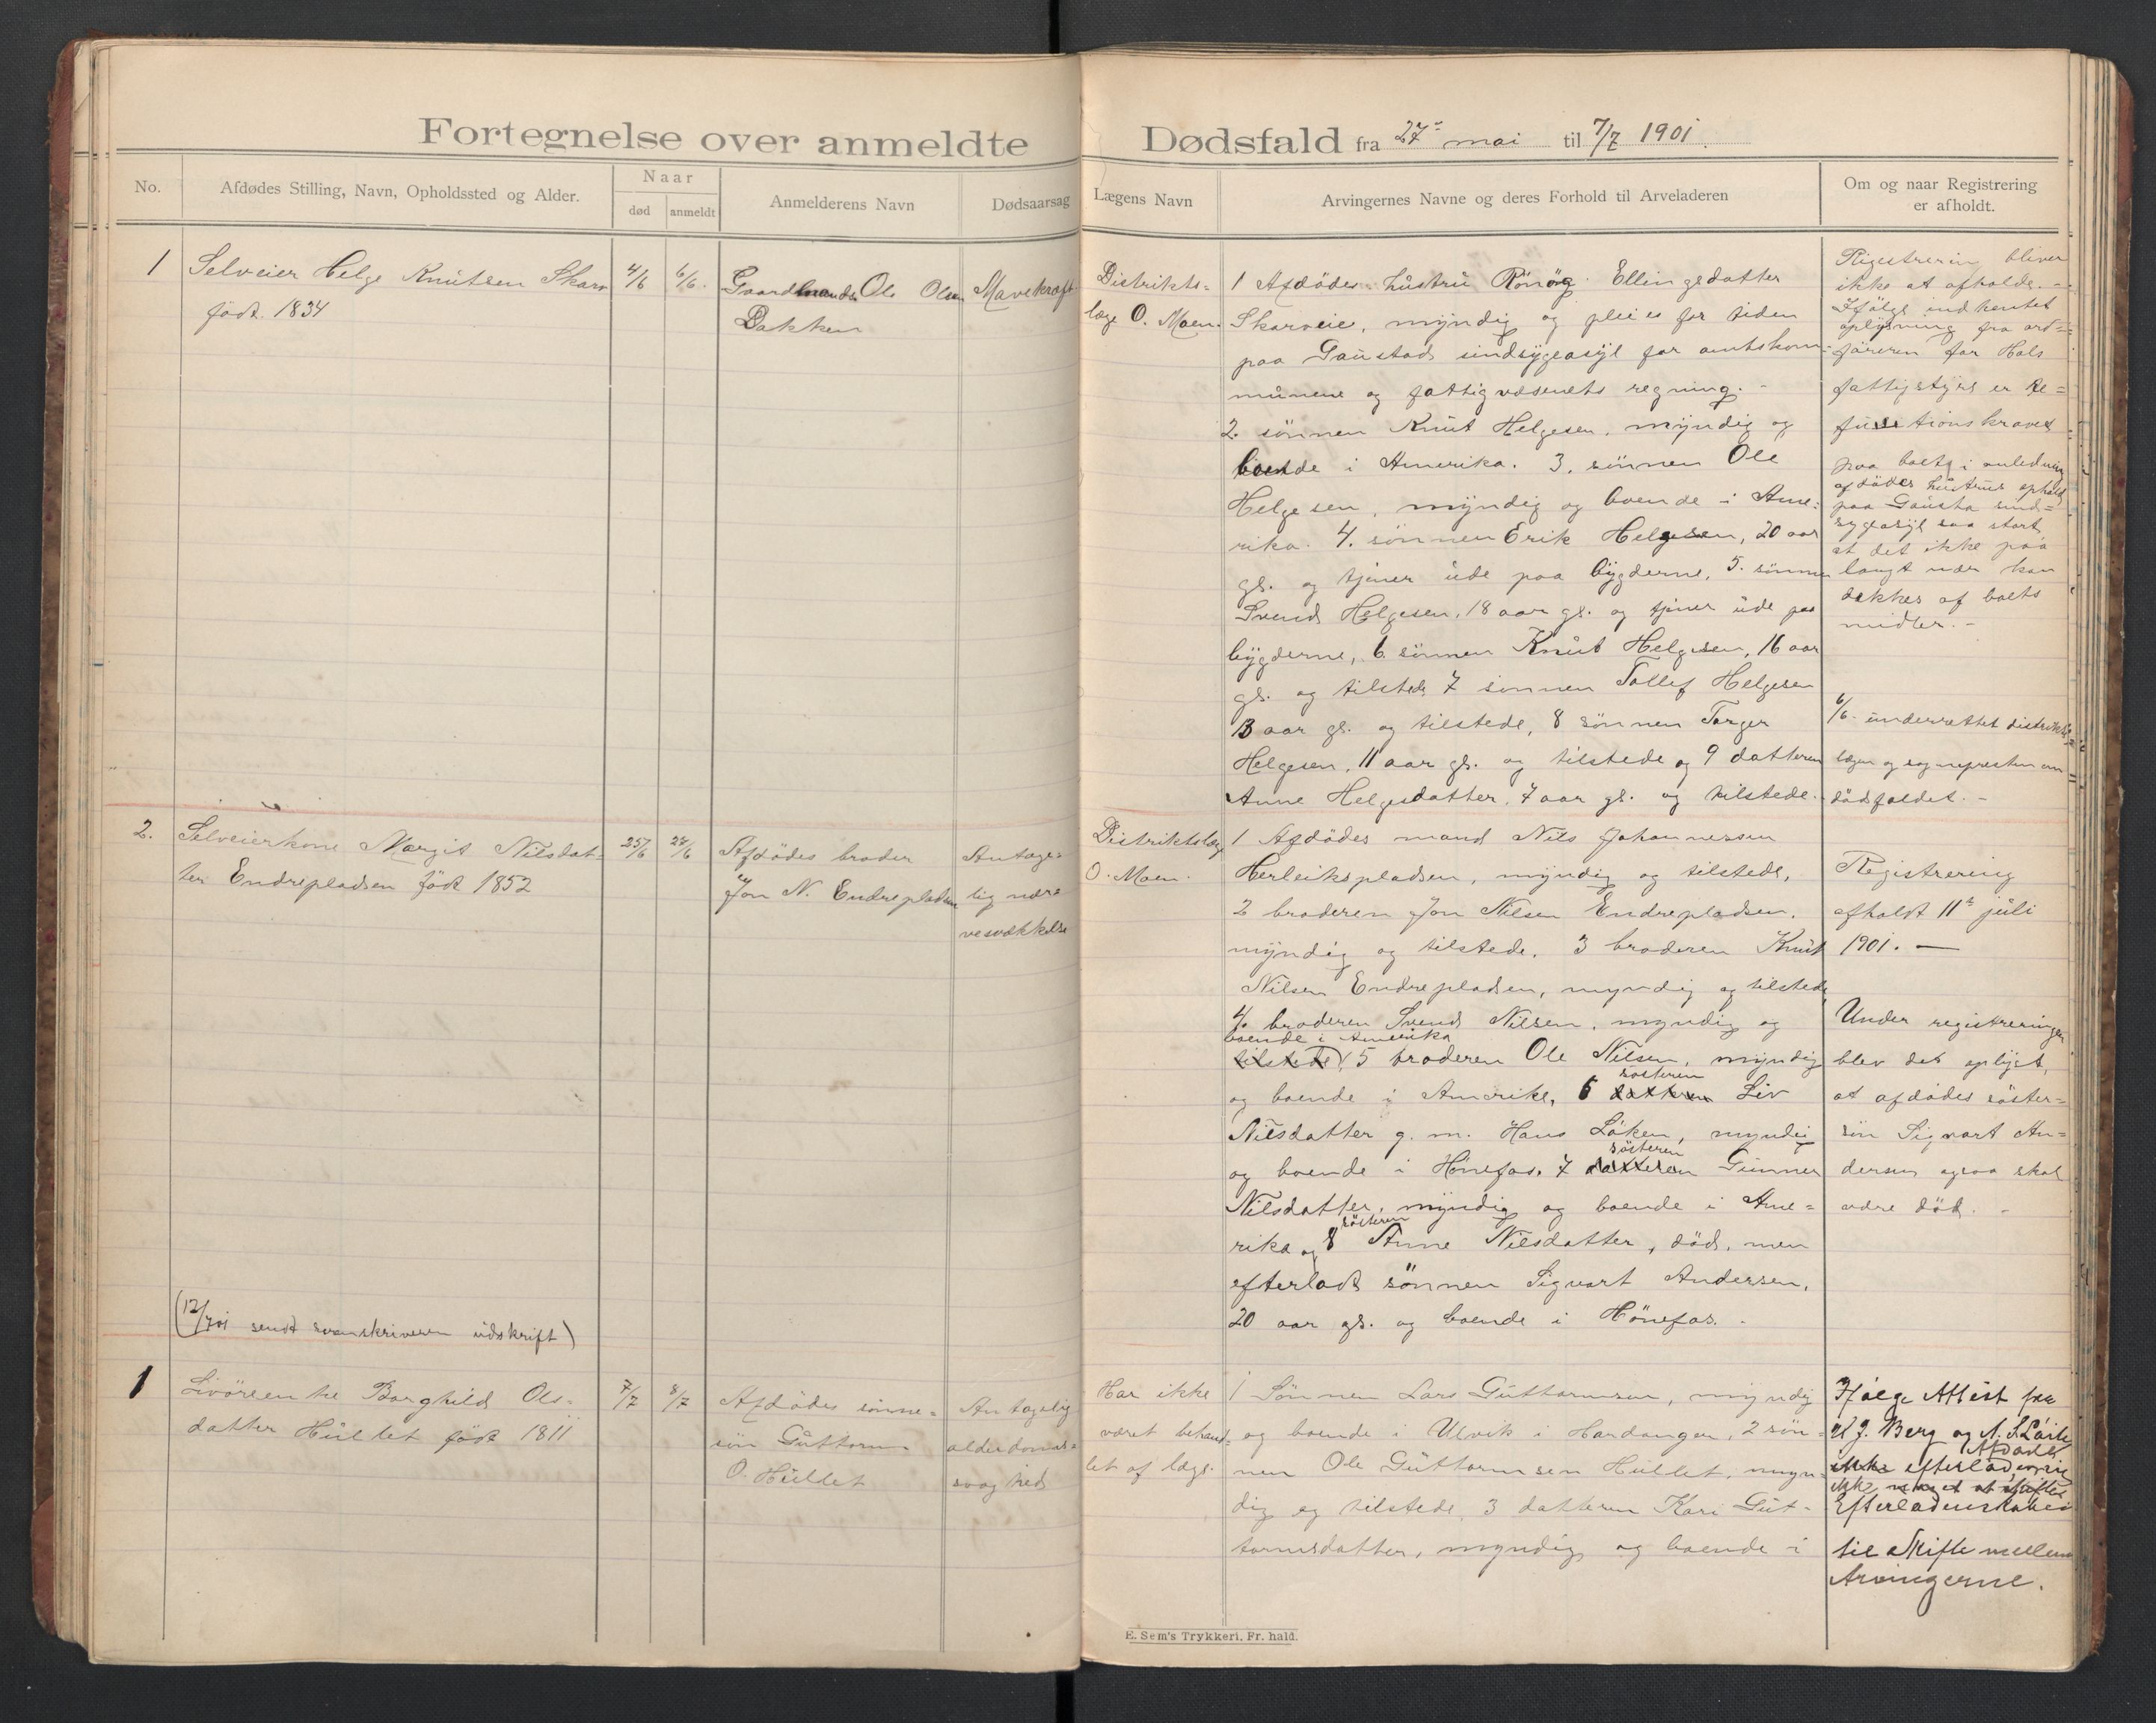 Fortegnelse over anmeldte Dødsfald fra 27de mai til 7/7 1901.
No.
Afdødes Stilling, Navn, Opholdssted og Alder.
Naar
død
anmeldt
Anmelderens Navn
Dødsaarsag
Lægens Navn
Arvingernes Navne og deres Forhold til Arveladeren
Om og naar Registrering
er afholdt.
1
Selveier Helge Knutsen Skarv
født 1834
4/6
6/6.
Gaardmand Ole Olsen
Bakken
Mavekræft
Distrikts=
læge O. Moen.
1 Afdødes hustru Rönög Ellingsdatter
Skarveie, myndig og pleies for tiden
paa Gaustad sindsygeasyl for amtskom=
munens og fattigvæsenets regning. -
2. sönnen Knut Helgesen, myndig og
boende i Amerika. 3. sönnen Ole
Helgesen, myndig og boende i Ame=
rika. 4. sönnen Erik Helgesen, 20 aar
gl. og tjener ude paa bygderne, 5. sönnen
Svend Helgesen, 18 aar gl. og tjener ude paa
bygderne, 6 sönnen Knut Helgesen, 16 aar
gl. og tilstede 7 sönnen Tollef Helgesen
13 aar gl. og tilstede, 8 sönnen Torger
Helgesen, 11 aar gl. og tilstede og 9 datteren
Anne Helgesdatter, 7 aar gl. og tilstede.
Registrering bliver
ikke at afholde. -
Ifölge indhentet
oplysning fra ord=
föreren for Hols
fattigstyre er Re=
fusionskravet
paa boet i anledning
afdödes hustrus ophold
paa Gausta sind=
sygeasyl saa stort,
at det ikke paa
langt nær kan
dækkes af boets
midler. -
6/6. underrettet distrikts
lægen og sognepresten om
dödsfaldet. -
2.
Selveierkone Margit Nilsdat=
ter Endrepladsen født 1852
25/6
28/6
Afdödes broder
Jon N. Endrepladsen
Antage=
lig nær=
vesvækkelse
Distriktslæge
O. Moen.
1 Afdödes mand Nils Johannessen
Herleikspladsen, myndig og tilstede,
2 broderen Jon Nilsen Endrepladsen,
myndig og tilstede, 3 broderen Knut
Nilsen Endrepladsen, myndig og tilstede
4. broderen Svend Nilsen, myndig og
boende i Amerika
tilstede, 5 broderen Ole Nilsen, myndig
sösteren
og boende i Amerika, 6 datteren Liv
Nilsdatter g. m. Hans Löken, myndig
sösteren
og boende i Hönefos, 7 datteren Gunner
Nilsdatter, myndig og boende i Ame=
sösteren
rika og 8 Anne Nilsdatter, död, men
efterladt sönnen Sigvart Andersen,
20 aar gl. og boende i Hönefos. -
Registrering
afholdt 11te juli
1901. —
Under registreringen
blev det oplyst,
at afdödes söster=
sön Sigvart An=
dersen ogsaa skal
være död. -
(12/7 01 sendt sorenskriveren udskrift)
1
Livöreenke Borghild Ols=
datter Hullet født 1811
7/7
8/7
Afdödes sönne=
sön Guttorm
O. Hullet
Antagelig
alderdoms=
svaghed
Har ikke
været behand=
let af læge.
1 Sönnen Lars Guttormsen, myndig
og boende i Ulvik i Hardanger, 2 sön=
nen Ole Guttormsen Hullet, myn=
dig og tilstede, 3 datteren Kari Gut=
tormsdatter, myndig og boende i
Ifølge Attest fra
Berg og
Afdøde
ikke efterlad
ikke
Efterladenskaber
til Skifte mellem
Arvingerne.
E. Sem's Trykkeri, Fr. hald.